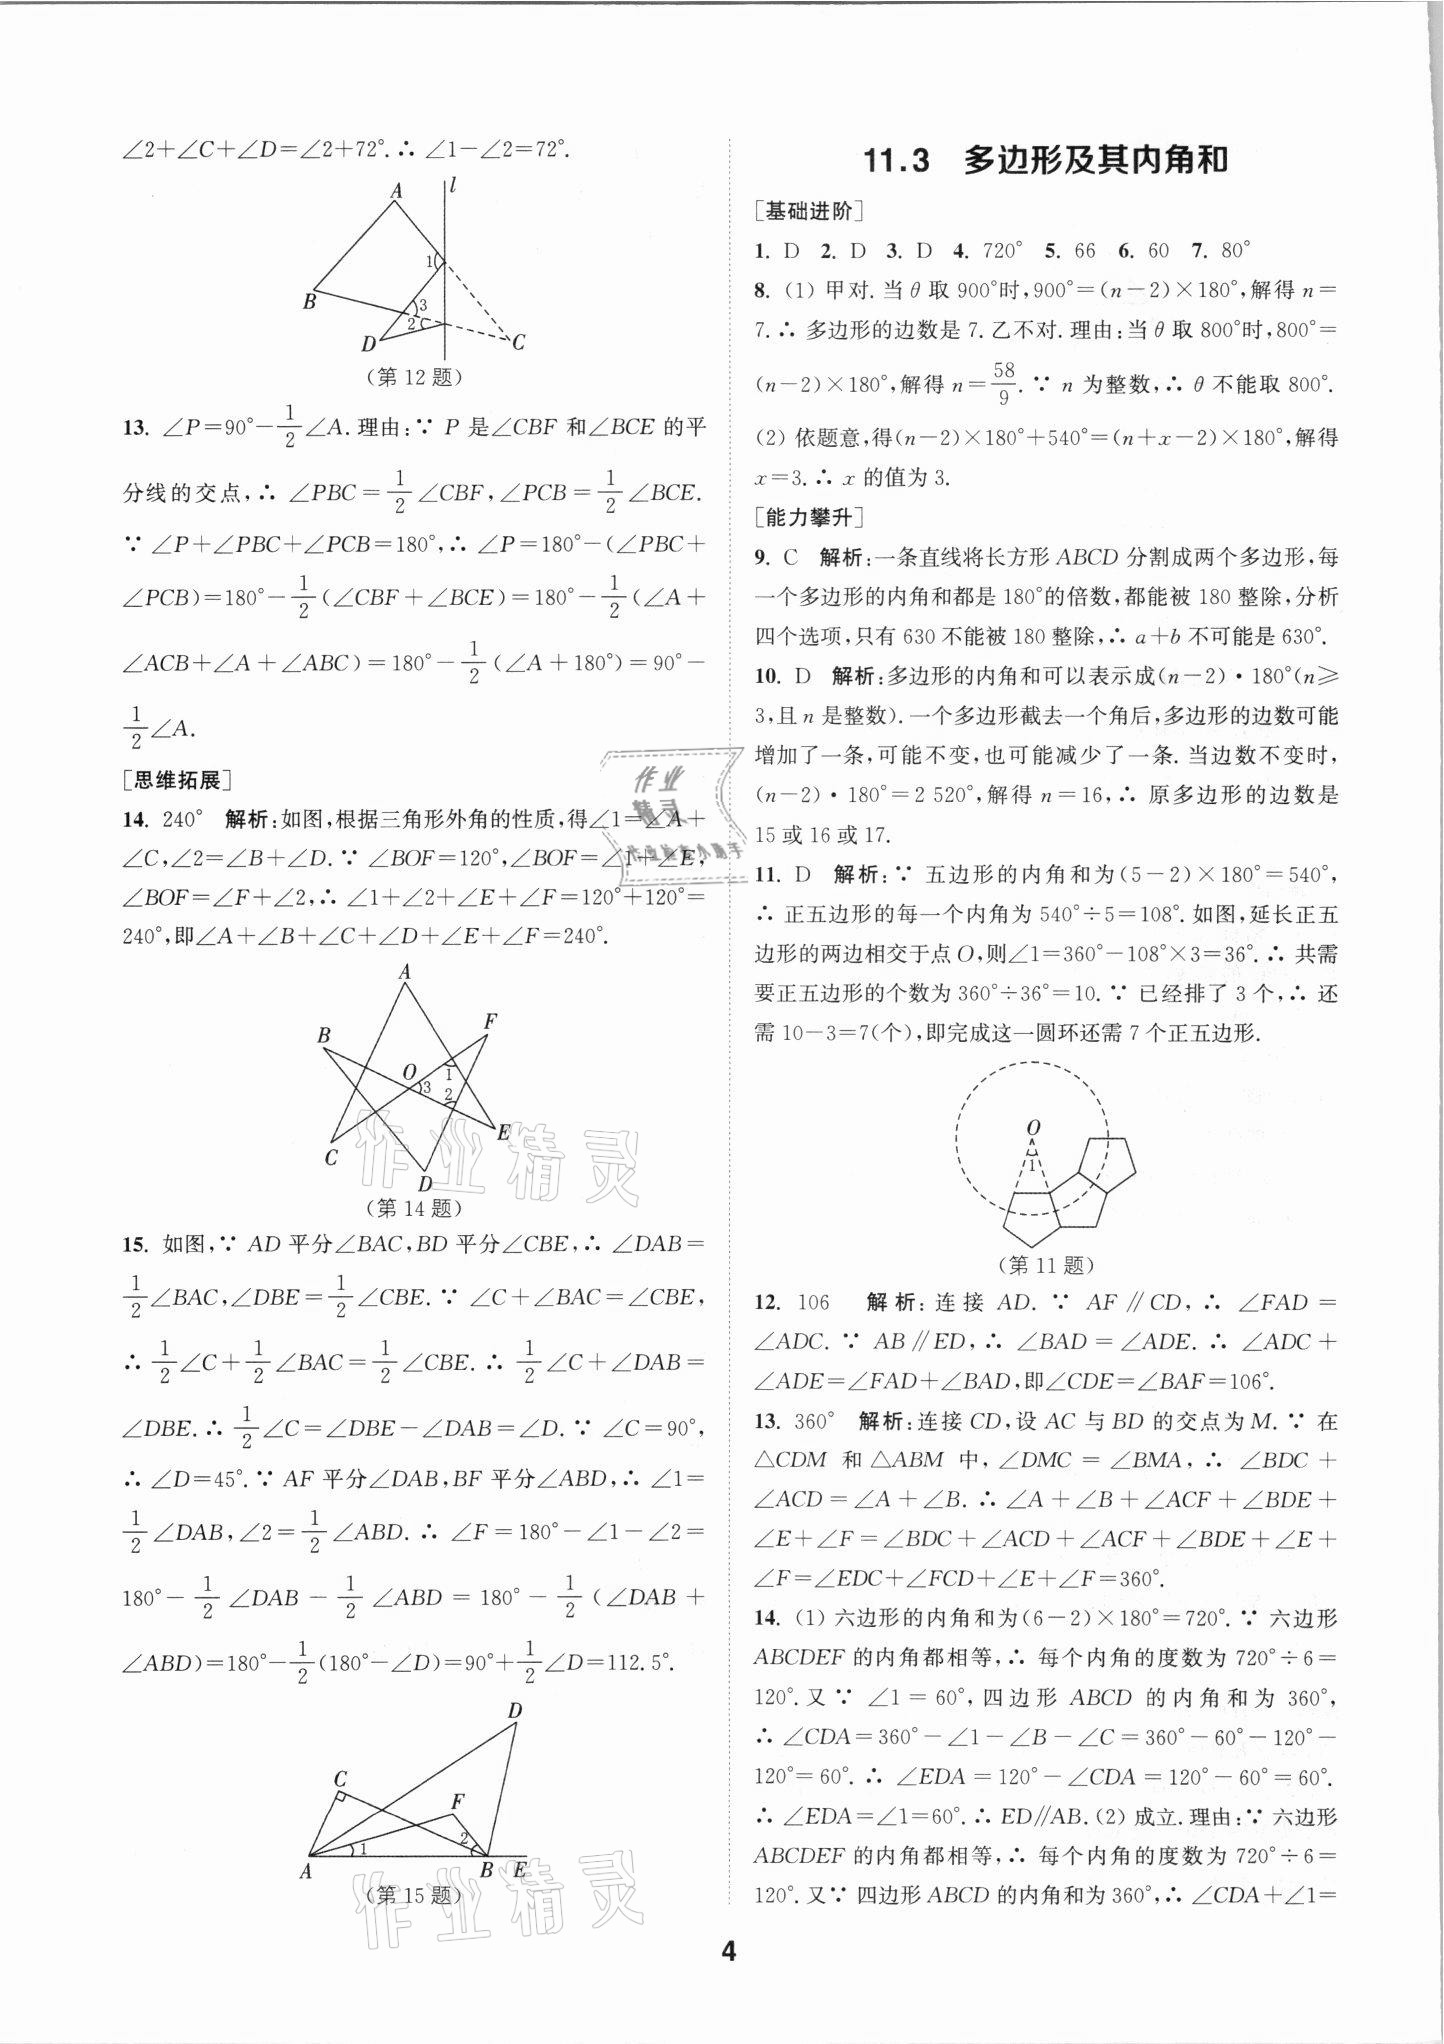 ∠2+∠C+∠D=∠2+72°.∴ ∠1-∠2=72°.
A
l
1
B
3
2
D
C
(第 12 题)
13. ∠P=90°-1/2∠A.理由:∵ P 是∠CBF 和∠BCE 的平
分线的交点,∴ ∠PBC=1/2∠CBF,∠PCB=1/2∠BCE.
∵ ∠P+∠PBC+∠PCB=180°,∴ ∠P=180°-(∠PBC+
∠PCB)=180°-1/2(∠CBF+∠BCE)=180°-1/2(∠A+
∠ACB+∠A+∠ABC)=180°-1/2(∠A+180°)=90°-
1/2∠A.
[思维拓展]
14. 240° 解析:如图,根据三角形外角的性质,得∠1=∠A+
∠C,∠2=∠B+∠D.∵ ∠BOF=120°,∠BOF=∠1+∠E,
∠BOF=∠F+∠2,∴ ∠1+∠2+∠E+∠F=120°+120°=
240°,即∠A+∠B+∠C+∠D+∠E+∠F=240°.
A
F
B
O
1
3
2
C
E
D
(第 14 题)
15. 如图,∵ AD 平分∠BAC,BD 平分∠CBE,∴ ∠DAB=
1/2∠BAC,∠DBE=1/2∠CBE.∵ ∠C+∠BAC=∠CBE,
∴ 1/2∠C+1/2∠BAC=1/2∠CBE.∴ 1/2∠C+∠DAB=
∠DBE.∴ 1/2∠C=∠DBE-∠DAB=∠D.∵ ∠C=90°,
∴ ∠D=45°.∵ AF 平分∠DAB,BF 平分∠ABD,∴ ∠1=
1/2∠DAB,∠2=1/2∠ABD.∴ ∠F=180°-∠1-∠2=
180°-1/2∠DAB-1/2∠ABD=180°-1/2(∠DAB+
∠ABD)=180°-1/2(180°-∠D)=90°+1/2∠D=112.5°.
D
C
F
1
2
A
B
E
(第 15 题)
11.3 多边形及其内角和
[基础进阶]
1. D 2. D 3. D 4. 720° 5. 66 6. 60 7. 80°
8. (1) 甲对.当 θ 取 900°时,900°=(n-2)×180°,解得 n=
7.∴ 多边形的边数是 7.乙不对.理由:当 θ 取 800°时,800°=
(n-2)×180°,解得 n=58/9.∵ n 为整数,∴ θ 不能取 800°.
(2) 依题意,得(n-2)×180°+540°=(n+x-2)×180°,解得
x=3.∴ x 的值为 3.
[能力攀升]
9. C 解析:一条直线将长方形 ABCD 分割成两个多边形,每
一个多边形的内角和都是 180°的倍数,都能被 180 整除,分析
四个选项,只有 630 不能被 180 整除,∴ a+b 不可能是 630°.
10. D 解析:多边形的内角和可以表示成(n-2)·180°(n≥
3,且 n 是整数).一个多边形截去一个角后,多边形的边数可能
增加了一条,可能不变,也可能减少了一条.当边数不变时,
(n-2)·180°=2 520°,解得 n=16,∴ 原多边形的边数是
15 或 16 或 17.
11. D 解析:∵ 五边形的内角和为(5-2)×180°=540°,
∴ 正五边形的每一个内角为 540°÷5=108°.如图,延长正五
边形的两边相交于点 O,则∠1=360°-108°×3=36°.∴ 共需
要正五边形的个数为 360°÷36°=10.∵ 已经排了 3 个,∴ 还
需 10-3=7(个),即完成这一圆环还需 7 个正五边形.
O
1
(第 11 题)
12. 106 解析:连接 AD.∵ AF∥CD,∴ ∠FAD=
∠ADC.∵ AB∥ED,∴ ∠BAD=∠ADE.∴ ∠ADC+
∠ADE=∠FAD+∠BAD,即∠CDE=∠BAF=106°.
13. 360° 解析:连接 CD,设 AC 与 BD 的交点为 M.∵ 在
△CDM 和△ABM 中,∠DMC=∠BMA,∴ ∠BDC+
∠ACD=∠A+∠B.∴ ∠A+∠B+∠ACF+∠BDE+
∠E+∠F=∠BDC+∠ACD+∠ACF+∠BDE+∠E+
∠F=∠EDC+∠FCD+∠E+∠F=360°.
14. (1) 六边形的内角和为(6-2)×180°=720°.∵ 六边形
ABCDEF 的内角都相等,∴ 每个内角的度数为 720°÷6=
120°.又∵ ∠1=60°,四边形 ABCD 的内角和为 360°,
∴ ∠CDA=360°-∠1-∠B-∠C=360°-60°-120°-
120°=60°.∴ ∠EDA=120°-∠CDA=120°-60°=60°.
∴ ∠EDA=∠1=60°.∴ ED∥AB.(2) 成立.理由:∵ 六边形
ABCDEF 的内角都相等,∴ 每个内角的度数为 720°÷6=
120°.又∵ 四边形 ABCD 的内角和为 360°,∴ ∠CDA+∠1=
4
作业
精灵
作业检查小助手
作业精灵
作业精灵